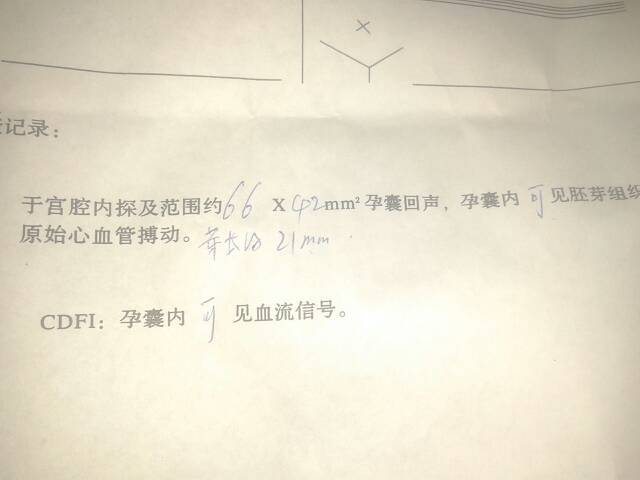 记录：
于宫腔内探及范围约66 X 42mm²孕囊回声，孕囊内 可 见胚芽组织
原始心血管搏动。芽长约 21mm
CDFI：孕囊内 可 见血流信号。